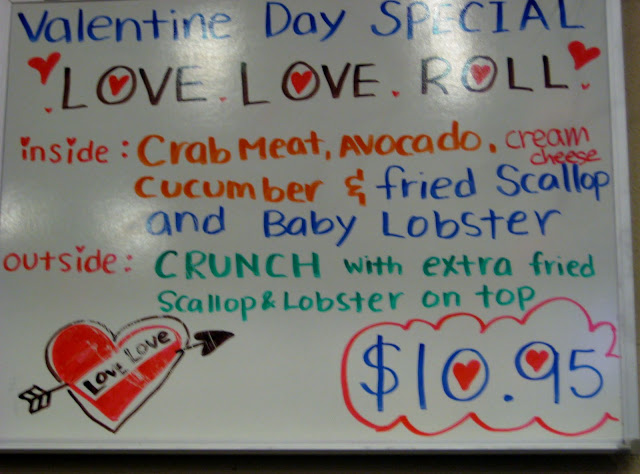 Valentine Day SPECIAL
LOVE. LOVE. ROLL!
inside: Crab Meat, Avocado, cream cheese
cucumber & fried Scallop
and Baby Lobster
outside: CRUNCH with extra fried
Scallop & Lobster on top
Love Love
$10.95